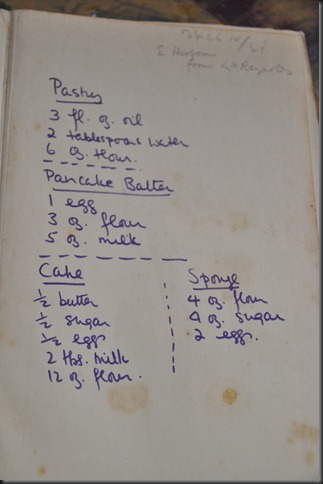 Pastry
3 fl. oz. oil
2 tablespoons water
6 oz. flour.
Pancake Batter
1 egg
3 oz. flour
5 oz. milk
Cake
½ butter
½ sugar
½ eggs
2 tbs. milk
12 oz. flour.
Sponge
4 oz. flour
4 oz. sugar
2 eggs.
from